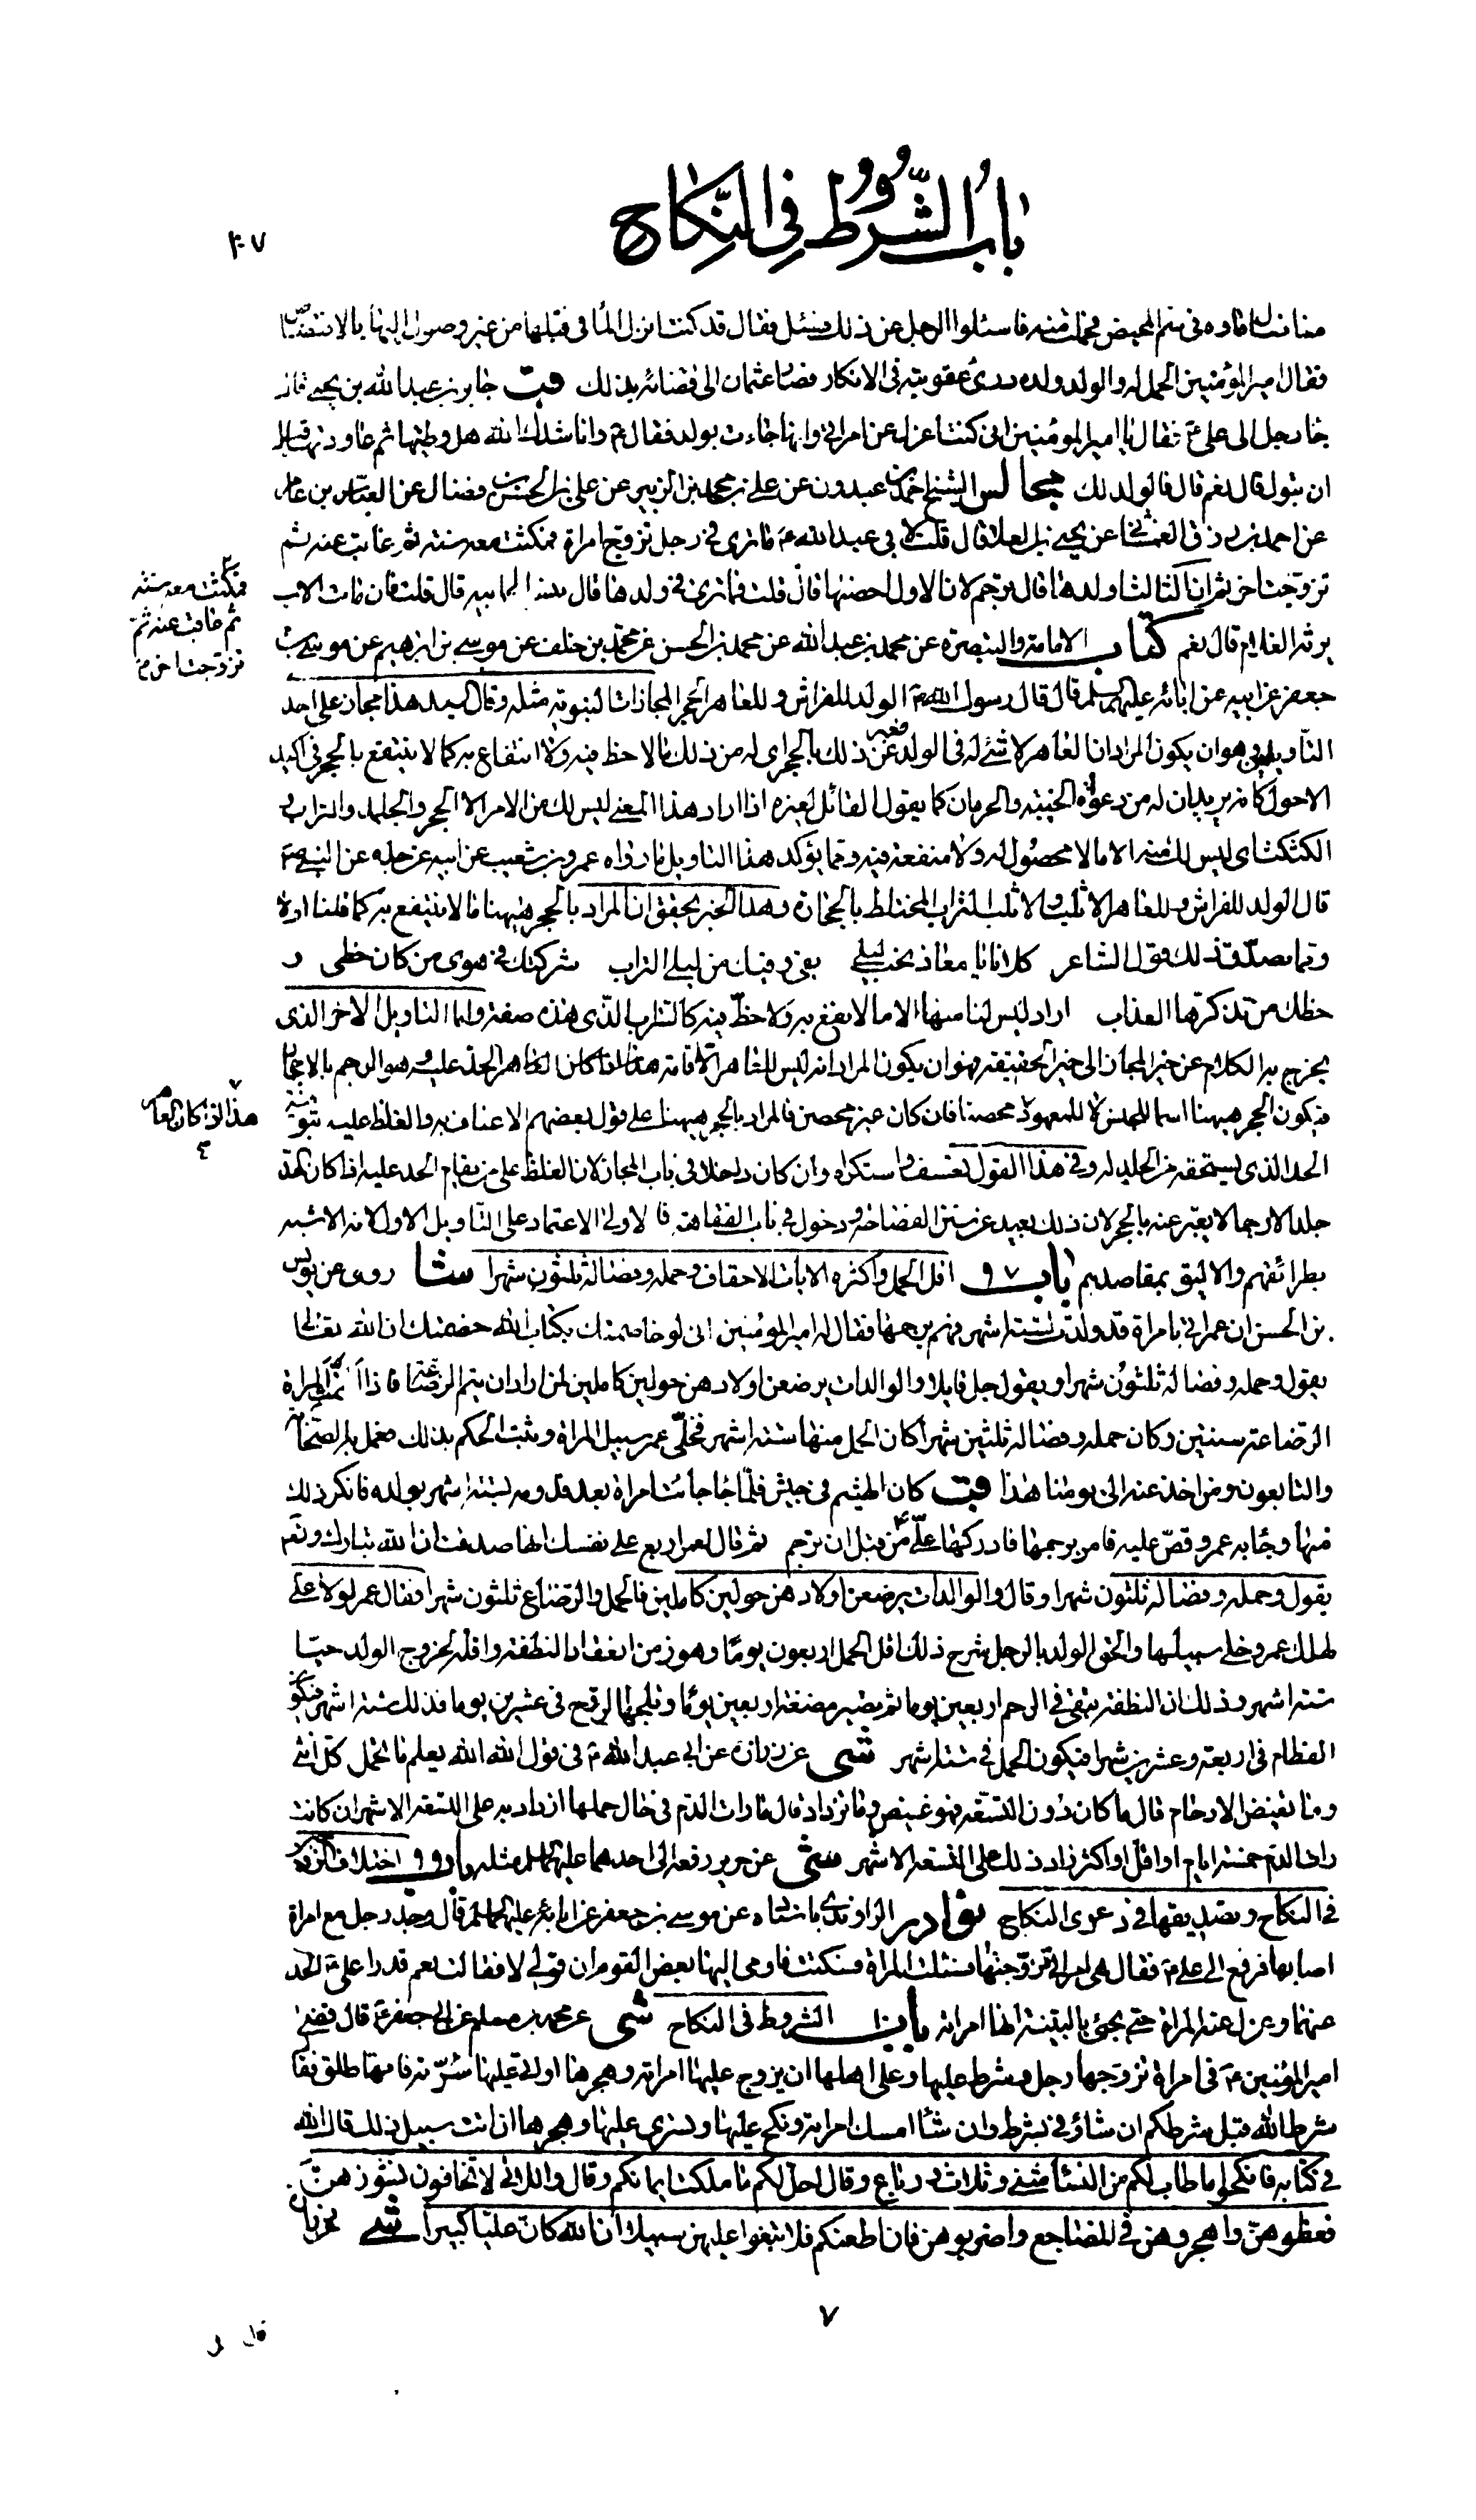 باب الشروط في النكاح
١٠٧
فقال امير المؤمنين الحمل له والولد ولده عقوبته في الانكار عثمان الى قضائه بذلك قب جابر بن عبد الله بن يحيى قال
جاء رجل الى علي ع فقال يا امير المؤمنين اني كنت اعزل عن امراتي وانها جاءت بولد فقال ع وانا شدك الله هل وطئتها ثم عاودتها قبل
ان تبول قال نعم قال فالولد لك مجالس الشيخ احمد بن عبدون عن علي بن محمد بن الزبير عن علي بن الحسن بن فضال عن العباس بن عامر
عن احمد بن رزق الغمشاني عن يحيى بن العلا قال قلت لابي عبد الله ع ما ترى في رجل تزوج امراة فمكثت معه سنة ثم غابت عنه ثم
فمكثت معه سنة
ثم غابت عنه ثم
تزوجت اخر م
تزوجت اخر ثم ان الثالث اولدها قال ترجم لان الاول احصنها قال قلت فما ترى في ولدها قال ينسب الى ابيه قال قلت فان مات الاب
يرثه الغلام قال نعم كتاب الامامة والتبصرة عن محمد بن عبد الله عن محمد بن الحسن عن محمد بن خلف عن موسى بن ابرهيم عن موسى بن
جعفر عن ابيه عن ابائه عليهم السلم قال قال رسول الله ص الولد للفراش وللعاهر الحجر المجازات النبوية مثله وقال السيد هذا مجاز على احد
التاويلين وهو ان يكون المراد ان العاهر لا شئ له في الولد فعبر عن ذلك بالحجر اي له من ذلك ما لا حظ فيه ولا انتفاع به كما لا ينتفع بالحجر في اكثر
الاحوال كانه يريد ان له من دعواه الخيبة والحرمان كما يقول القائل لغيره اذا اراد هذا المعنى ليس لك من الامر الا الحجر والجلمد والتراب و
الكثكث اي ليس لك منه الا ما لا محصول له ولا منفعة فيه ومما يؤكد هذا التاويل ما رواه عمرو بن شعيب عن ابيه عن جده عن النبي ص
قال الولد للفراش وللعاهر الاثلب والاثلب التراب المختلط بالحجارة وهذا الخبر يحقق ان المراد بالحجر هيهنا ما لا ينتفع به كما قلنا اولا
ومما يصدق ذلك قول الشاعر كلانا يا معاذ يحب ليلى بفي وفيك من ليلى التراب شركتك في هوى من كان حظي و
حظك من تذكرها العذاب اراد ليس لنا منها الا ما لا نفع به ولا حظ فيه كالتراب الذي هذه صفته واما التاويل الاخر الذي
يخرج به الكلام عن حيز المجاز الى حيز الحقيقة فهو ان يكون المراد انه ليس للعاهر الا اقامة الحد عليه وهو الرجم بالاحجار
هذا اذا كان العاهر
فيكون الحجر هيهنا اسما للجنس لا للمعهود محصنا فان كان غير محصن فالمراد بالحجر هيهنا على قول بعضهم الاعناف به والغلظ عليه بتوفية
الحد الذي يستحقه من الجلد له وفي هذا القول تعسف واستكراه وان كان داخلا في باب المجاز لان الغلظ على من يقام الحد عليه اذا كان الحد
جلدا لا رجما لا يعبر عنه بالحجر لان ذلك بعيد عن سنن الفصاحة ودخول في باب الفهاهة فالاولى الاعتماد على التاويل الاول لانه الاشبه
بطرائقهم والاليق بمقاصدهم باب اقل الحمل واكثره الايات الاحقاف وحمله وفصاله ثلثون شهرا شا روي عن يونس
بن الحسن ان عمر اتي بامراة قد ولدت لستة اشهر فهم برجمها فقال له امير المؤمنين ان لو خاصمتك بكتاب الله خصمتك ان الله تعالى
يقول وحمله وفصاله ثلثون شهرا ويقول جل قايلا والوالدات يرضعن اولادهن حولين كاملين لمن اراد ان يتم الرضاعة فاذا تممت المراة
الرضاعة سنتين وكان حمله وفصاله ثلثين شهرا كان الحمل منها ستة اشهر فخلى عمر سبيل المراة وثبت الحكم بذلك فعمل به الصحابة
والتابعون ومن اخذ عنه الى يومنا هذا قب كان الهيثم في جيش فلما جاء جاءت امراة بعد قدومه لستة اشهر بولد فانكر ذلك
منها وجاء به عمر وقص عليه فامر برجمها فادركها علي ع من قبل ان ترجم ثم قال لعمر اربع على نفسك انها صدقت ان الله تبارك وتعالى
يقول وحمله وفصاله ثلثون شهرا وقال والوالدات يرضعن اولادهن حولين كاملين فالحمل والرضاع ثلثون شهرا فقال عمر لولا علي
لهلك عمر وخلى سبيلها والحق الولد بالرجل شرح ذلك اقل الحمل اربعون يوما وهو زمن انعقاد النطفة واقله لخروج الولد حيا
ستة اشهر وذلك ان النطفة تبقى في الرحم اربعين يوما ثم تصير مضغة اربعين يوما وتلجها الروح في عشرين يوما فذلك ستة اشهر فيكون
الفطام في اربعة وعشرين شهرا فيكون الحمل في ستة اشهر شي عن زرارة عن ابي عبد الله ع في قول الله الله يعلم ما تحمل كل انثى
وما تغيض الارحام قال ما كان دون التسعة فهو غيض وما تزداد قال ما رات الدم في حال حملها ازداد به على التسعة الاشهر ان كانت
رات الدم خمسة ايام او اقل او اكثر زاد ذلك على التسعة الاشهر شي عن حريز رفعه الى احدهما عليهما السلم مثله باب اختلاف الزوجين
في النكاح وتصديقها في دعوى النكاح نوادر الراوندي باسناده عن موسى بن جعفر عن ابائه عليهم السلم قال وجد رجل مع امراة
اصابها فرفع الى علي ع فقال هي امراتي تزوجتها فسئلت المراة فسكتت فاومى اليها بعض القوم ان قولي لا فقالت نعم فدرا علي ع الحد
عنهما وعزل عنه المراة حتى يجئ بالبينة انها امراته باب الشروط في النكاح شي عن محمد بن مسلم عن ابي جعفر ع قال قضى
امير المؤمنين ع في امراة تزوجها رجل وشرط عليها وعلى اهلها ان يزوج عليها امراة وهجرها او اتى عليها سرية فانها طالق فقال
شرط الله قبل شرطكم ان شاء وفى بشرط وان شاء امسك امراته ونكح عليها وتسرى عليها وهجرها ان اتت سبيل ذلك قال الله
في كتابه فانكحوا ما طاب لكم من النساء مثنى وثلاث ورباع وقال احل لكم ما ملكت ايمانكم وقال واللاتي لا تخافون نشوزهن
فعظوهن واهجروهن في المضاجع واضربوهن فان اطعنكم فلا تبغوا عليهن سبيلا ان الله كان عليا كبيرا شي
٧